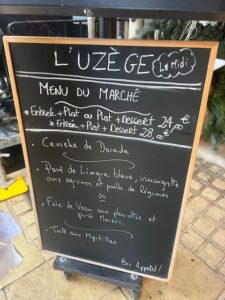 L'UZÈGE
Le Midi
MENU DU MARCHÉ
* Entrée + Plat ou Plat + Dessert 24,00€
* Entrée + Plat + Dessert 28,00€
- Ceviche de Dorade
- Pavé de Lingue bleue, vinaigrette
aux agrumes et poêlée de légumes
ou
- Foie de Veau aux pleurottes et
purée Maison
- Tarte aux Myrtilles
Bon Appétit!